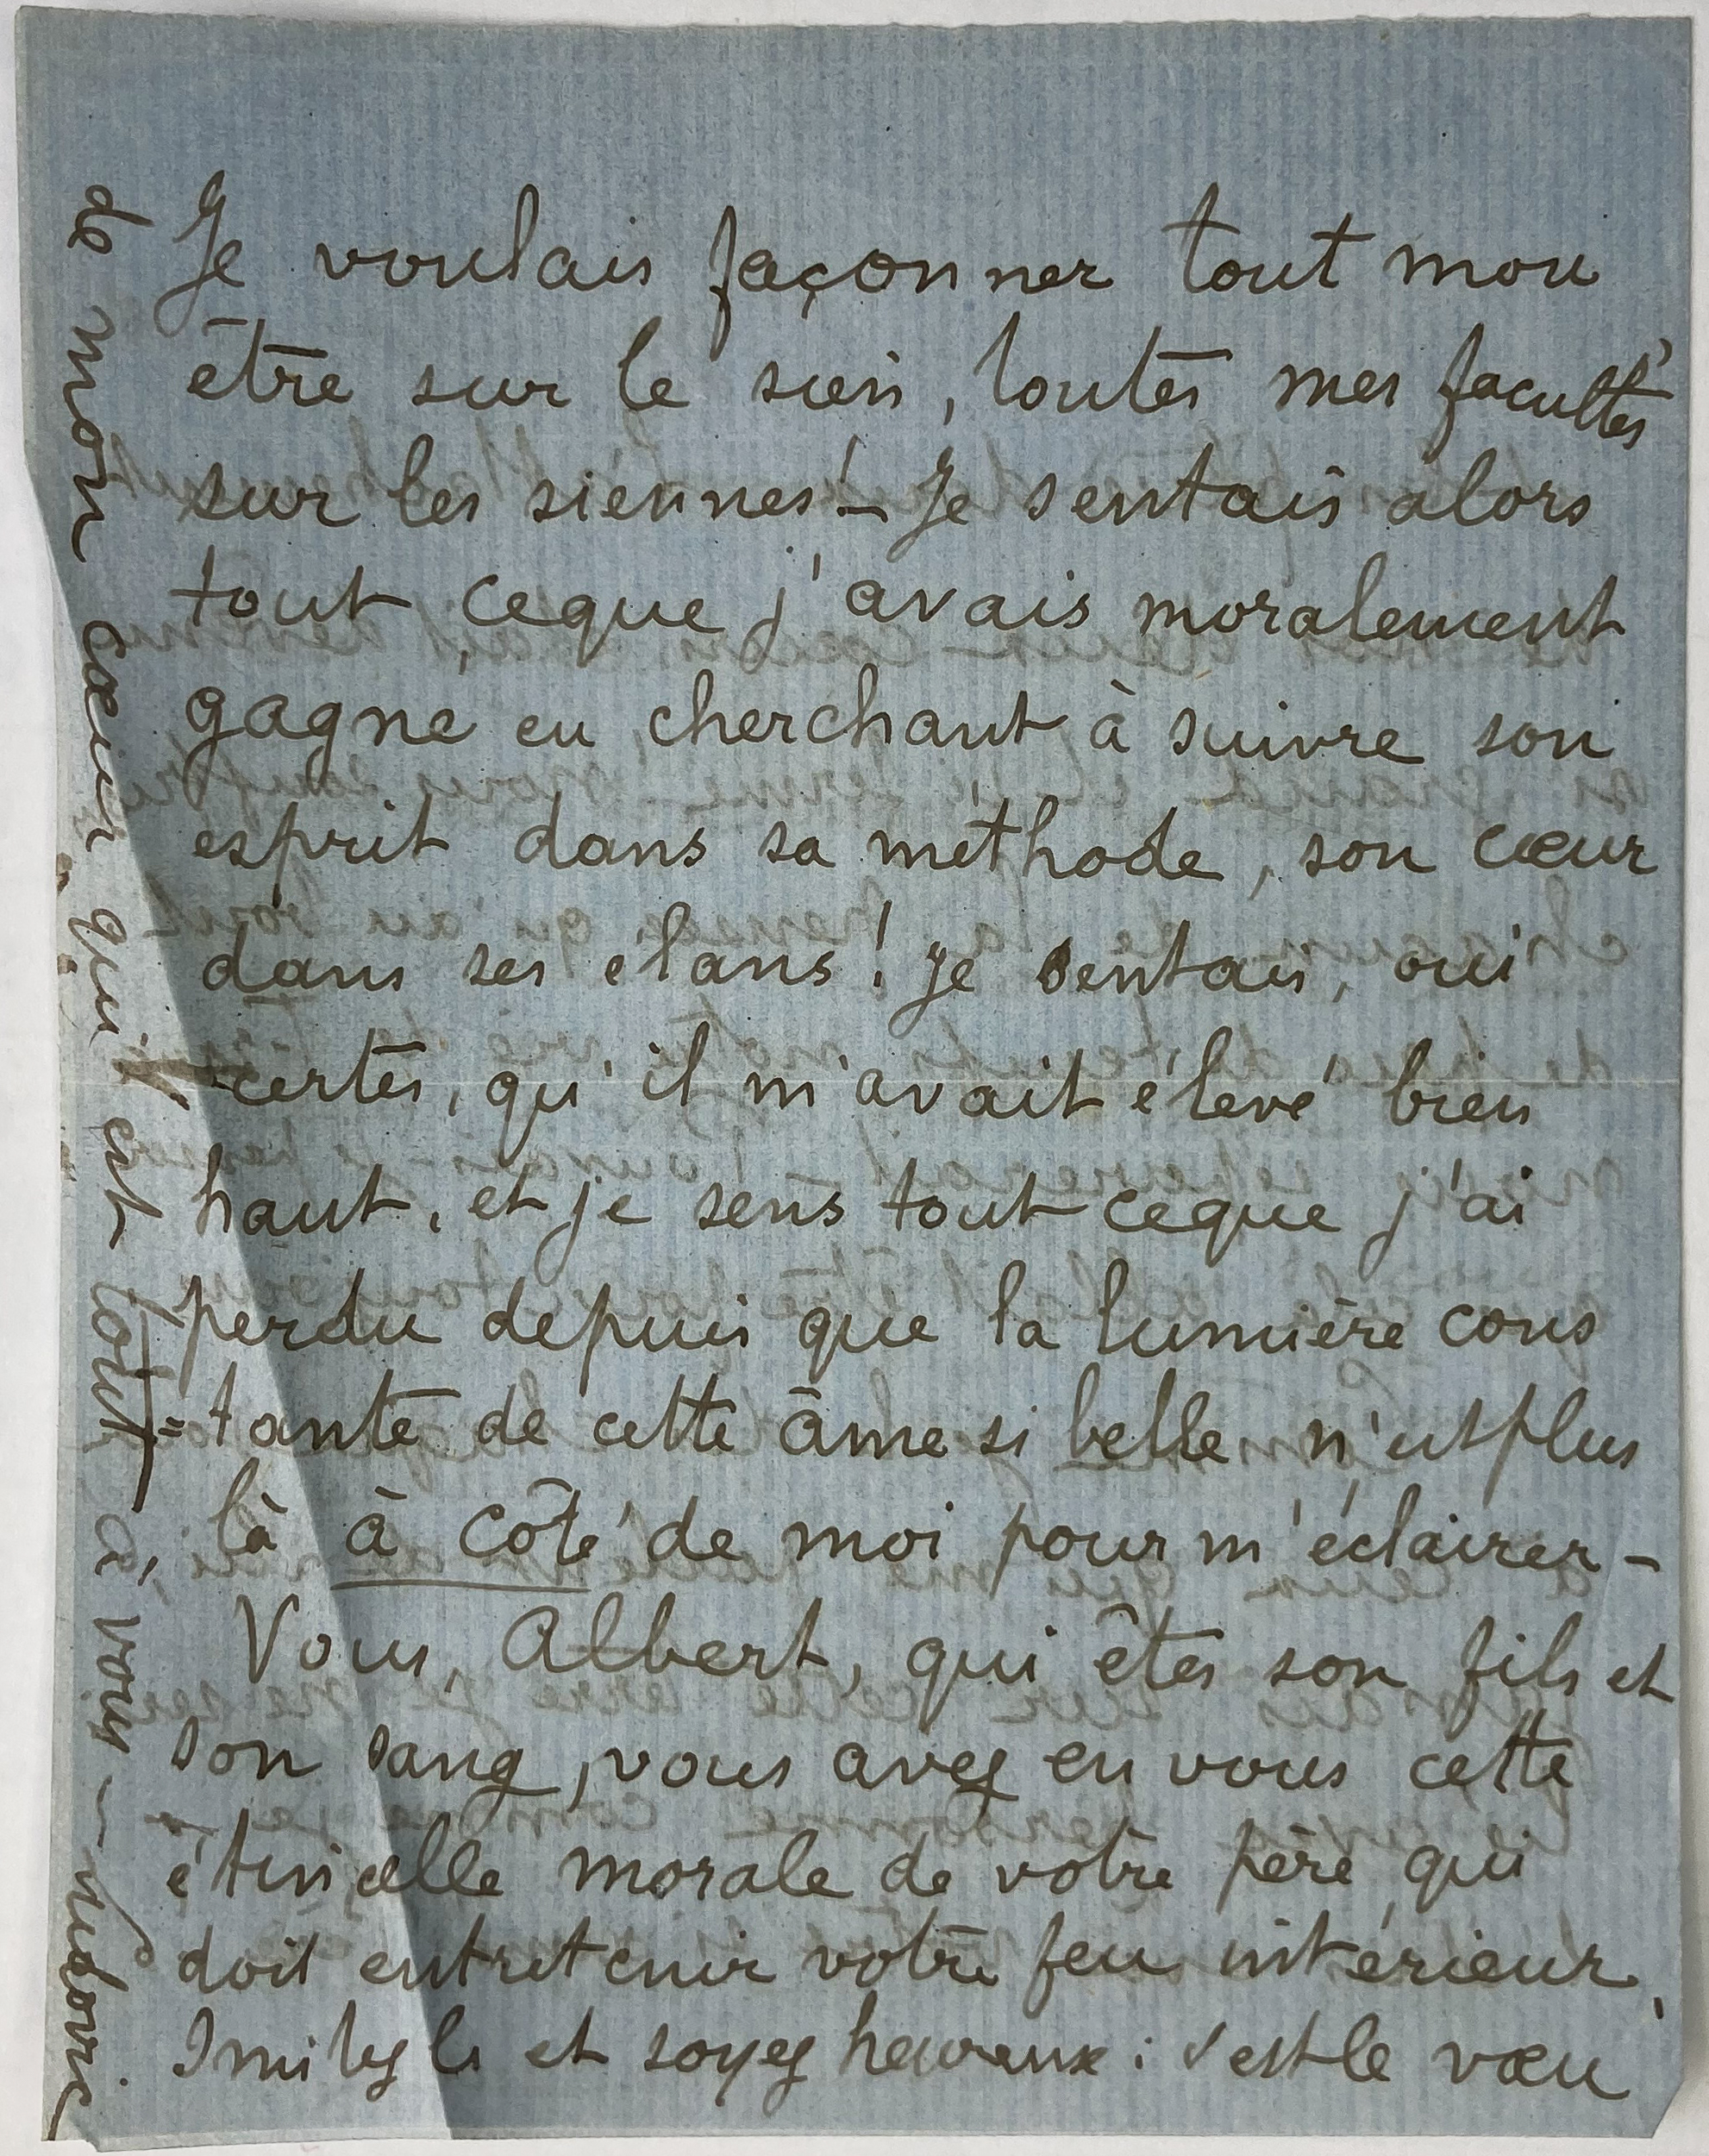 Je voulais façonner tout mon
être sur le sien, toutes mes facultés
sur les siennes! – Je sentais alors
tout ceque j'avais moralement
gagné en cherchant à suivre son
esprit dans sa méthode, son cœur
dans ses élans! Je sentais, oui
certes, qu'il m'avait élevé bien
haut, et je sens tout ceque j'ai
perdu depuis que la lumière cons
=tante de cette âme si belle n'est plus
là à côté de moi pour m'éclairer –
Vous, Albert, qui êtes son fils et
son sang, vous avez en vous cette
étincelle morale de votre père qui
doit entretenir votre feu intérieur,
Imitez le et soyez heureux : c'est le vœu
de mon cœur qui est tout à vous –